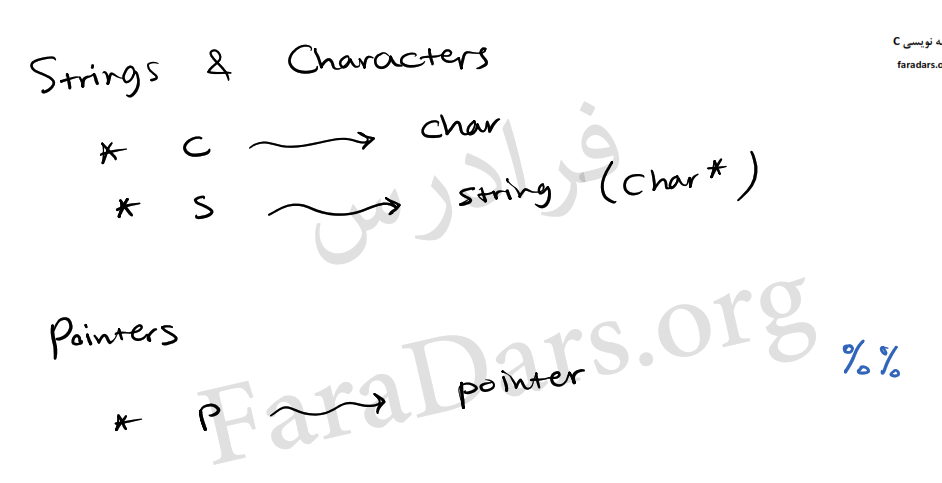 ه نویسی C
faradars.o
Strings & Characters
* C → char
* S → string (char*)
Pointers
%%
* P → pointer
فرادرس
FaraDars.org